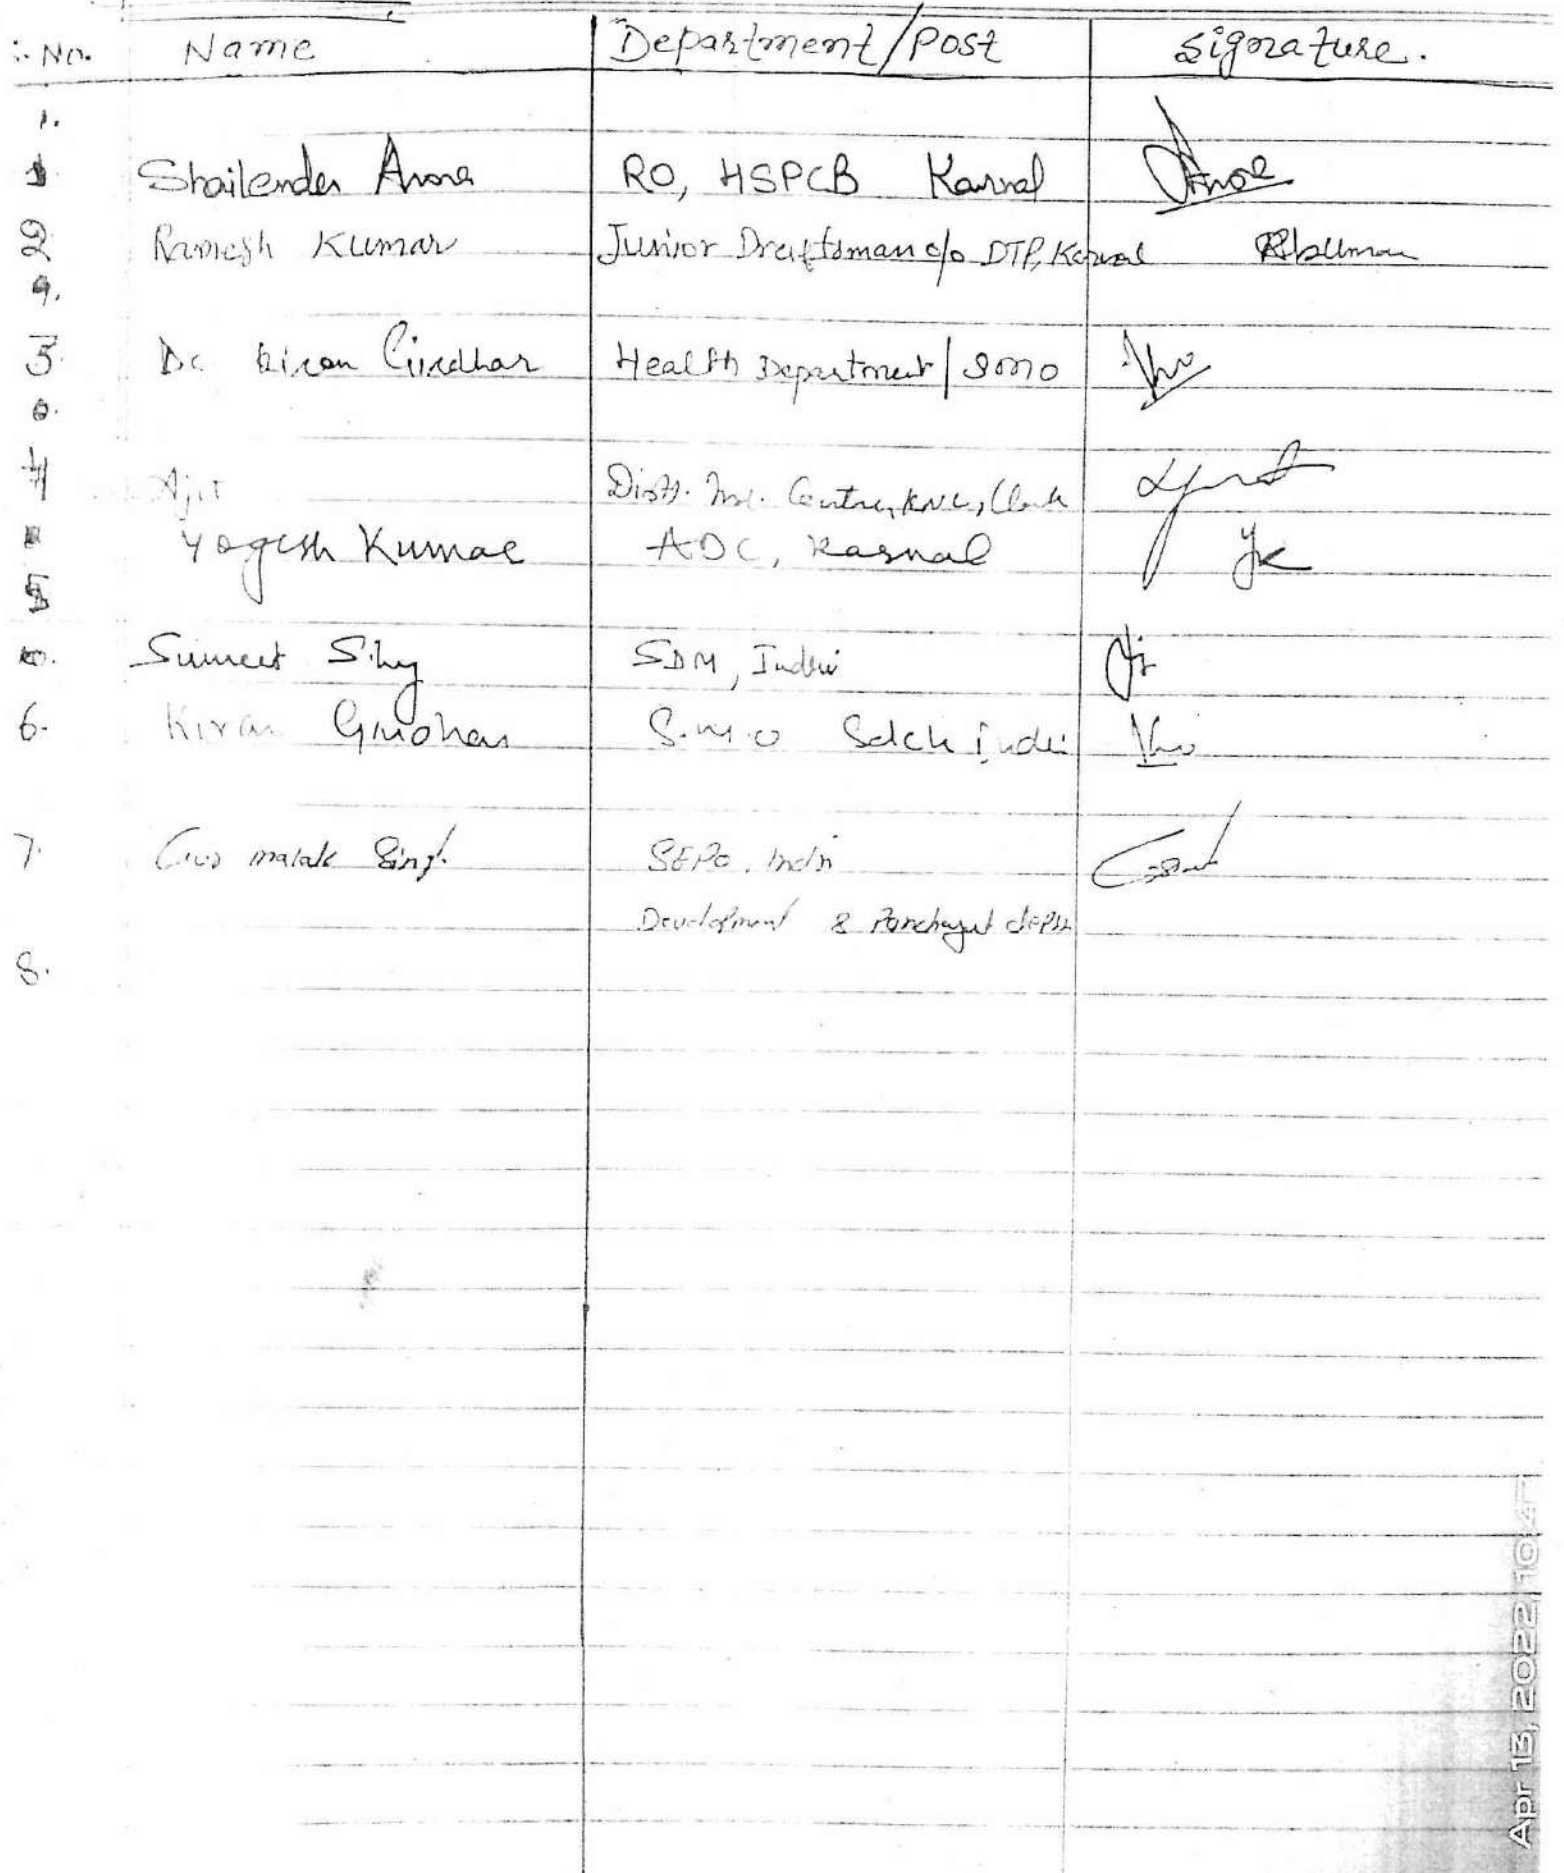 No. Name Department/Post Signature.
1.
1 Shailender Arora RO, HSPCB Karnal Arora
2 Ramesh Kumar Junior Draftsman o/o DTP, Karnal
9.
3. Dr Kiran Girdhar Health Department/SMO
4 Ajit Distt. Ind. Centre, KNL, Clerk
Yogesh Kumar ADC, Karnal YK
5
Sumeet Sihag SDM, Indri
6. Kiran Girdhar S.M.O Indri
7. Gur malak Singh SEPO, Indri
Development & Panchayat deptt
8.
Apr 13, 2022, 10:4